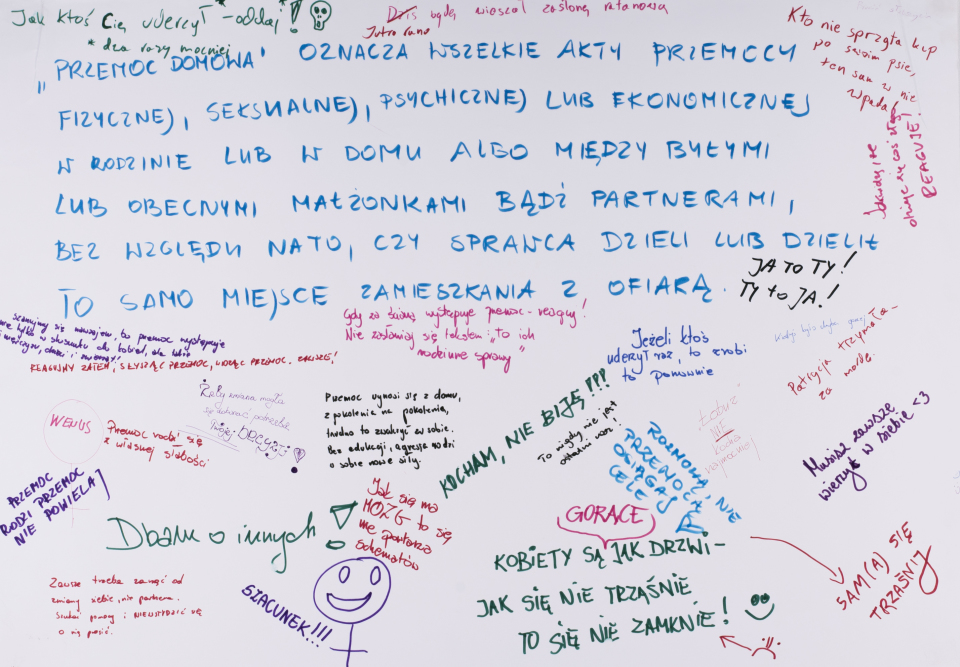 Jak ktoś Cię uderzył* - oddaj!
* dwa razy mocniej
Dziś będę wieszał zasłonę ratanową
Jutro rano
Kto nie sprząta kup
po swoim psie,
ten sam w nie
wpada
dzieje się coś złego
REAGUJE!
„PRZEMOC DOMOWA" OZNACZA WSZELKIE AKTY PRZEMOCY
FIZYCZNEJ, SEKSUALNEJ, PSYCHICZNEJ LUB EKONOMICZNEJ
W RODZINIE LUB W DOMU ALBO MIĘDZY BYŁYMI
LUB OBECNYMI MAŁŻONKAMI BĄDŹ PARTNERAMI,
BEZ WZGLĘDU NATO, CZY SPRAWCA DZIELI LUB DZIELIŁ
TO SAMO MIEJSCE ZAMIESZKANIA Z OFIARĄ.
JA TO TY!
TY to JA!
się nawzajem, bo przemoc występuje
nie tylko w stosunku do kobiet, ale także
mężczyzn, dzieci i zwierząt!
REAGUJMY ZATEM, SŁYSZĄC PRZEMOC, WIDZĄC PRZEMOC.
Gdy za ścianą występuje przemoc - reaguj!
Nie zasłaniaj się tekstem: „to ich
rodzinne sprawy"
Jeżeli ktoś
uderzył raz, to zrobi
to ponownie
Patrycja trzymała
za mordę
WENUS
Przemoc rodzi się
z własnej słabości
Żeby zmiana mogła
się dokonać potrzeba
Twojej DECYZJI!
Przemoc wynosi się z domu,
z pokolenia na pokolenie,
trudno to zwalczyć w sobie.
Bez edukacji, agresja rodzi
o sobie nowe siły.
KOCHAM, NIE BIJĘ!!!
To nigdy nie jest
ostatni raz!
Łobuz
NIE
kocha
najmocniej
ROZMOWĄ, NIE
PRZEMOCĄ
OSIĄGAJ
CELE
Musisz zawsze
wierzyć w siebie <3
PRZEMOC
RODZI PRZEMOC
NIE POWIELAJ
Dbam o innych!
Jak się ma
MÓZG to się
nie powtarza
schematów
GORĄCE
KOBIETY SĄ JAK DRZWI -
JAK SIĘ NIE TRZĄŚNIE
TO SIĘ NIE ZAMKNIE!
SAM(A) SIĘ
TRZAŚNIJ
Zawsze trzeba zacząć od
zmiany siebie, nie partnera.
Szukać pomocy i NIE WSTYDZIĆ SIĘ
o nią prosić.
SZACUNEK!!!